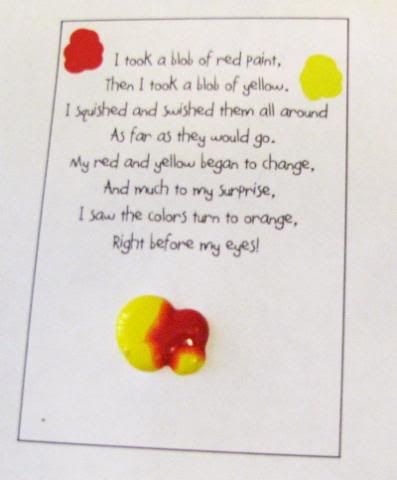 I took a blob of red paint,
Then I took a blob of yellow.
I squished and swished them all around
As far as they would go.
My red and yellow began to change,
And much to my surprise,
I saw the colors turn to orange,
Right before my eyes!